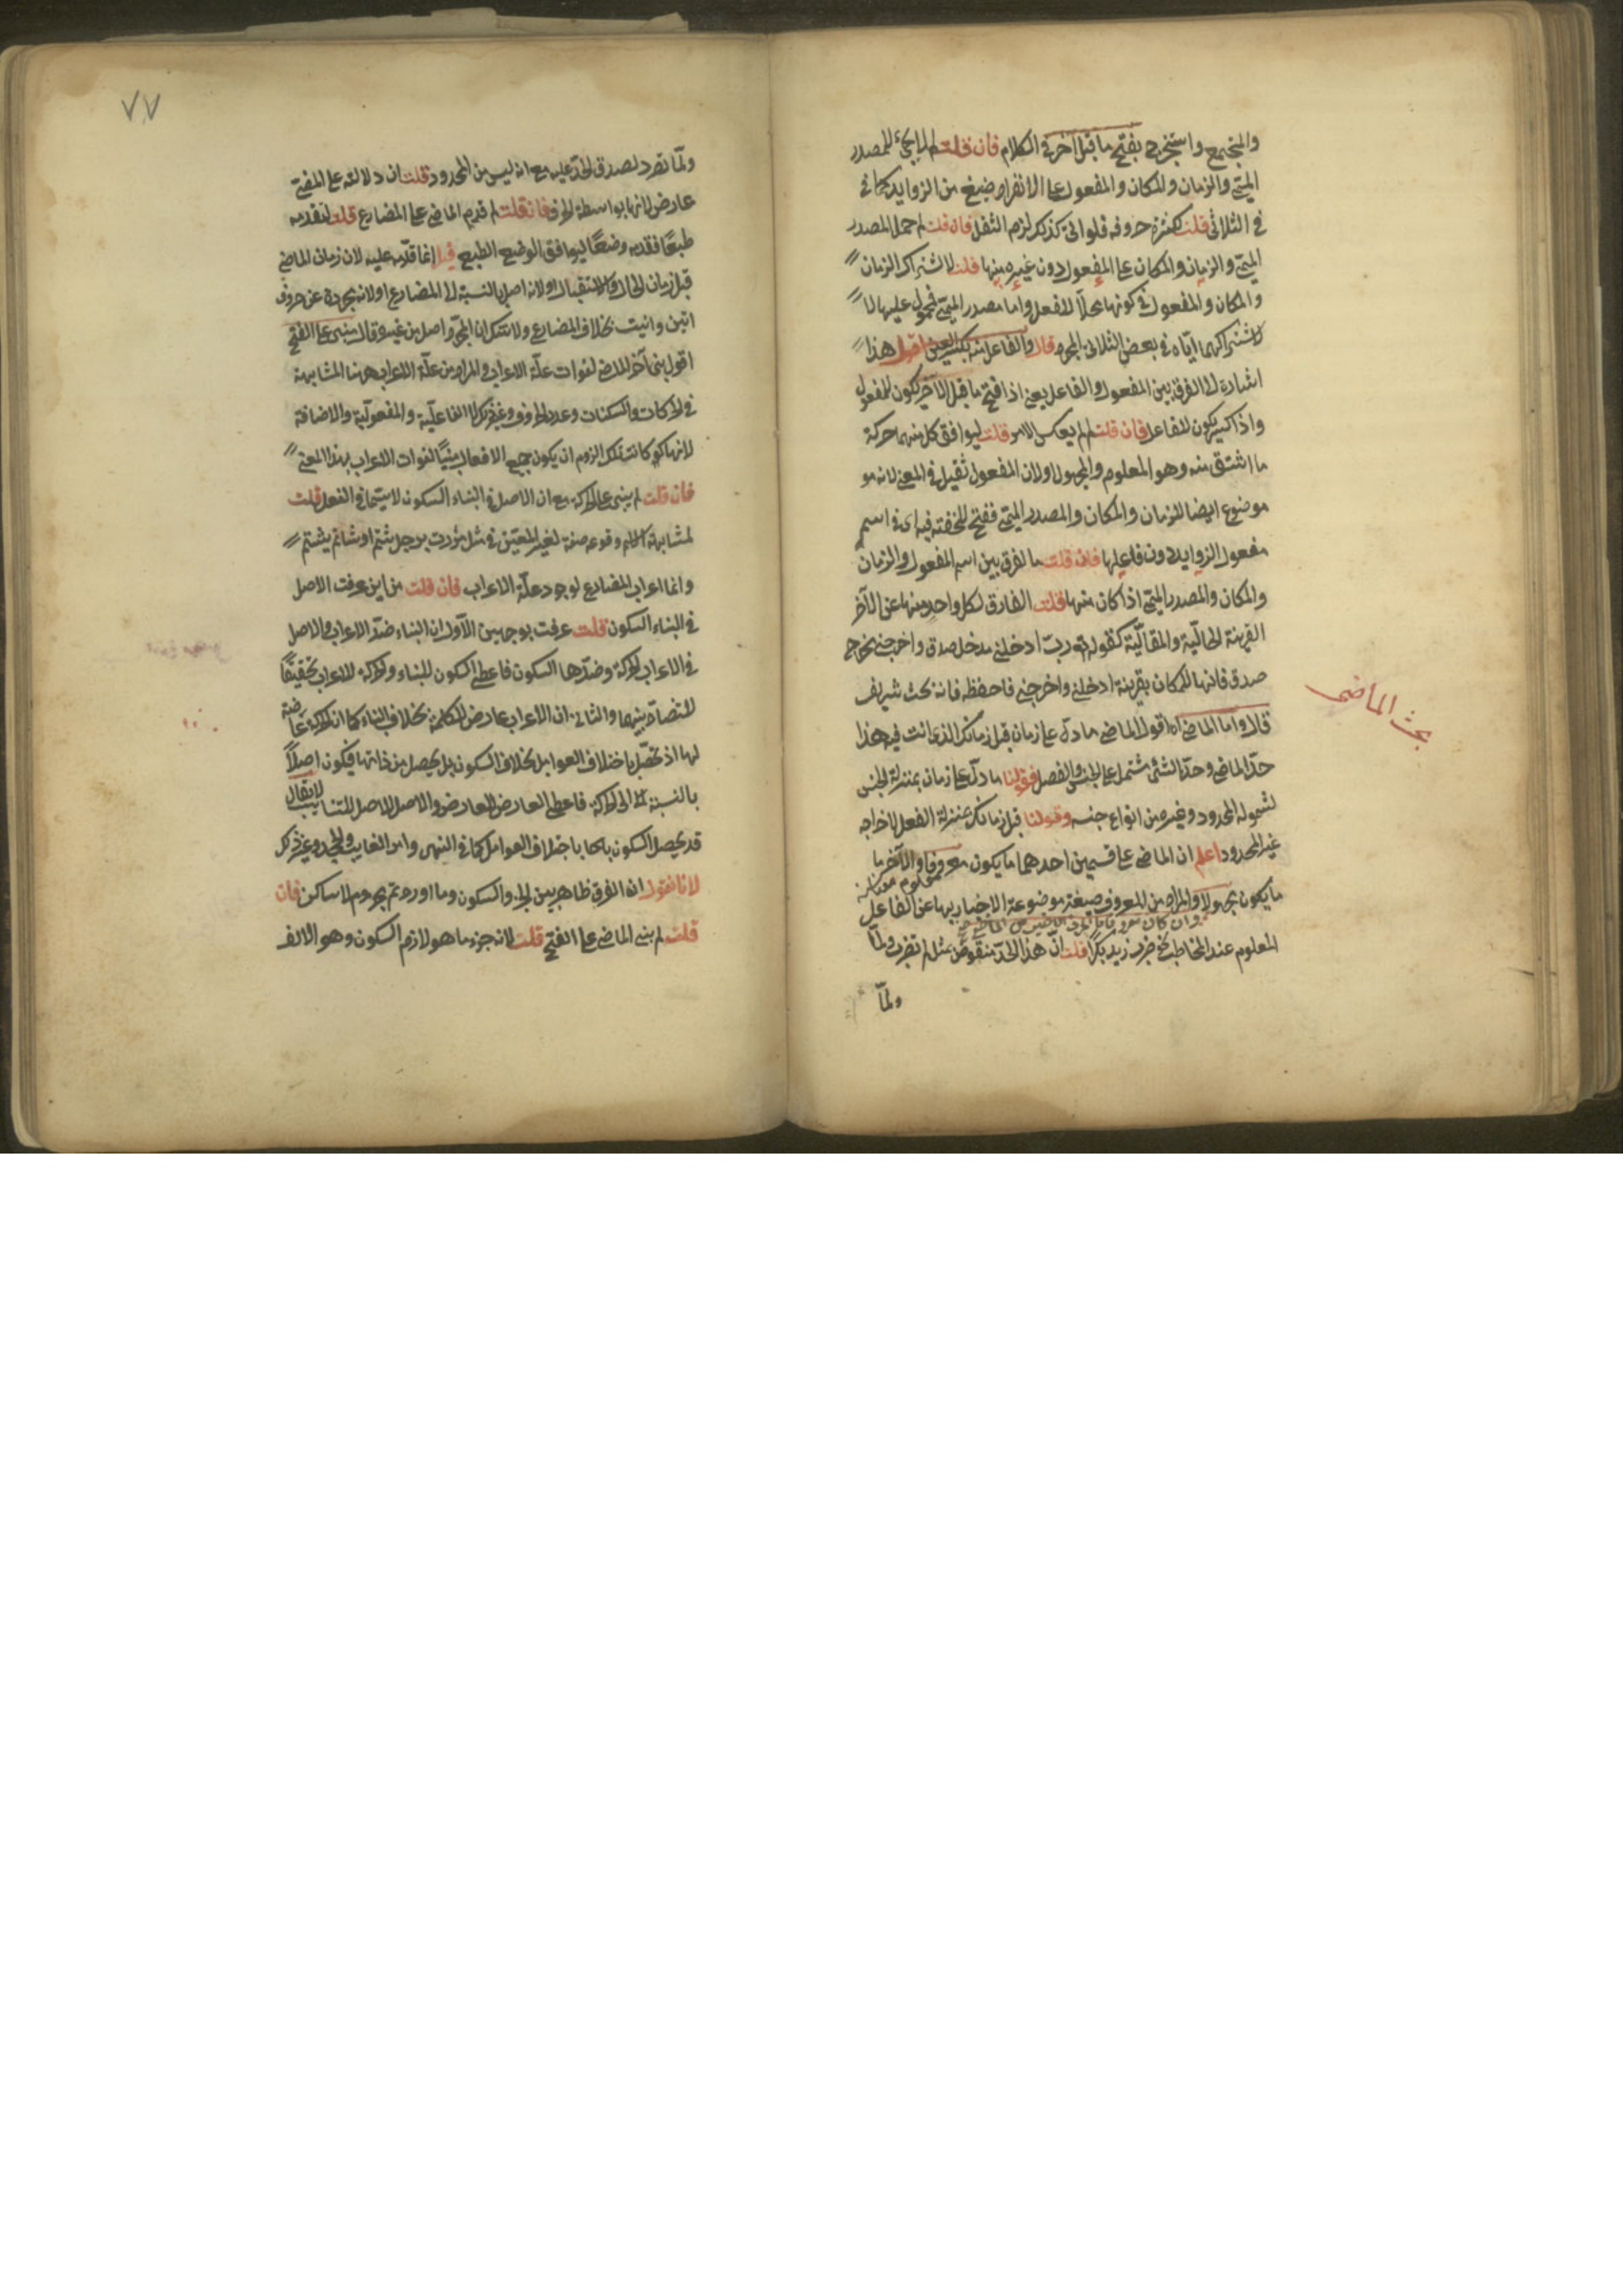 والمجتمع واستخرج بفتح ما قبل آخره في الكلام فان قلت لم لم يجئ للمصدر
الميمي والزمان والمكان والمفعول على الانفراد صيغ من الزوايد كما في
في الثلاثي قلت لكثرة حروفه فلو اتى كذلك لزم الثقل فان قلت لم حمل المصدر
الميمي والزمان والمكان على المفعول دون غيره منها قلت لاشتراك الزمان
والمكان والمفعول في كونها محلا للفعل واما مصدر الميمي فمحمول عليها لا
لاشتراكهما اياه في بعض الثلاثي المجرد قال والفاعل منه بكسر العين اقول هذا
اشارة الى الفرق بين المفعول والفاعل يعني اذا فتح ما قبل الآخر يكون للمفعول
واذا كسر يكون للفاعل فان قلت لم لم يعكس الامر قلت ليوافق كل منهما حركة
ما اشتق منه وهو المعلوم والمجهول ولان المفعول ثقيل في المعنى لانه هو
موضوع ايضا للزمان والمكان والمصدر الميمي ففتح للخفة فيه اى في اسم
مفعول الزوايد دون فاعلها فان قلت ما الفرق بين اسم المفعول والزمان
والمكان والمصدر الميمي اذا كان منها قلت الفارق لكل واحد منها عن الآخر
القرينة الحالية والمقالية كقوله تع رب ادخلني مدخل صدق واخرجني مخرج
صدق فانها للمكان بقرينة ادخلني واخرجني فاحفظه فانه بحث شريف
قال واما الماضي اه اقول الماضي ما دل على زمان قبل زمانك الذى انت فيه هذا
حد الماضي وحد الشئ مشتمل على الجنس والفصل فقولنا ما دل على زمان بمنزلة الجنس
لشموله المحدود وغيره من انواع جنسه وقولنا قبل زمانك بمنزلة الفصل لاخراجه
غير المحدود اعلم ان الماضي على قسمين احدهما ما يكون معروفا والآخر ما
ما يكون مجهولا والمراد من المعروف صيغة موضوعة الاخبار بها عن الفاعل
المعلوم عند المخاطب نحو ضرب زيد بكرا قلت ان هذا الحد منقوض بمثل لم تضرب ولما
ولما
بحث الماضى
٧٧
ولما تضرد لصدق الحد عليه مع انه ليس من المحدود قلت ان دلالته على المضي
عارض لانها بواسطة الحرف فان قلت لم قدم الماضي على المضارع قلت لتقدمه
طبعا فقدمه وضعا ليوافق الوضع الطبع قيل انما قدمه عليه لان زمان الماضي
قبل زمان الحال والاستقبال ولانه اصل بالنسبة الى المضارع ولانه مجرد عن حروف
اتين وانيت بخلاف المضارع ولا شك ان المجرد اصل من غيره وقال مبني على الفتح
اقول بنى آخر الماضي لفوات علة الاعراب والمراد من علة الاعراب ههنا المشابهة
في الحركات والسكنات وعدد الحروف وغير ذلك لا الفاعلية والمفعولية والاضافة
لانها لو كانت تلك لزم ان يكون جميع الافعال مبنيا لفوات الاعراب بهذا المعنى
فان قلت لم يبنى على الحركة مع ان الاصل في البناء السكون لا سيما في الفعل قلت
لمشابهة الاسم وقوعه صفة لغير المعين في مثل مررت برجل شتم او شاتم يشتم
وانما اعراب المضارع لوجود علة الاعراب فان قلت من اين عرفت الاصل
في البناء السكون قلت عرفت بوجهين الاول ان البناء ضد الاعراب والاصل
في الاعراب الحركة وضدها السكون فاعطى السكون للبناء والحركة للاعراب تحقيقا
للتضاد بينهما والثاني ان الاعراب عارض للكلمة بخلاف البناء كما ان الحركة عارضة
لها اذ تحصل باختلاف العوامل بخلاف السكون بل يحصل من ذاتها فيكون اصلا
بالنسبة الى الحركة فاعطى العارض للعارض والاصل للاصل للتناسب لا يقال
قد يحصل السكون باختلاف العوامل كما في النهى وامر الغايب والجحد وغير ذلك
لانا نقول ان الفرق ظاهر بين الجزم والسكون وما اوردتم مجزوم لا ساكن فان
قلت لم بنى الماضي على الفتح قلت لانه جزء ما هو لازم السكون وهو الالف